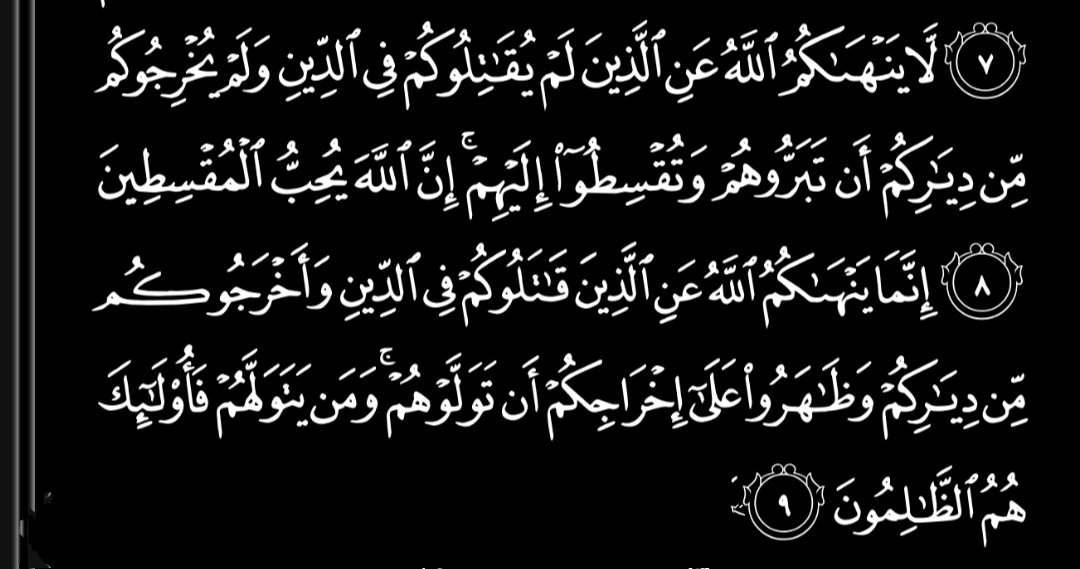 ٧ لَّا يَنْهَىٰكُمُ ٱللَّهُ عَنِ ٱلَّذِينَ لَمْ يُقَٰتِلُوكُمْ فِى ٱلدِّينِ وَلَمْ يُخْرِجُوكُم
مِّن دِيَٰرِكُمْ أَن تَبَرُّوهُمْ وَتُقْسِطُوٓا۟ إِلَيْهِمْ ۚ إِنَّ ٱللَّهَ يُحِبُّ ٱلْمُقْسِطِينَ
٨ إِنَّمَا يَنْهَىٰكُمُ ٱللَّهُ عَنِ ٱلَّذِينَ قَٰتَلُوكُمْ فِى ٱلدِّينِ وَأَخْرَجُوكُم
مِّن دِيَٰرِكُمْ وَظَٰهَرُوا۟ عَلَىٰٓ إِخْرَاجِكُمْ أَن تَوَلَّوْهُمْ ۚ وَمَن يَتَوَلَّهُمْ فَأُو۟لَٰٓئِكَ
هُمُ ٱلظَّٰلِمُونَ ٩